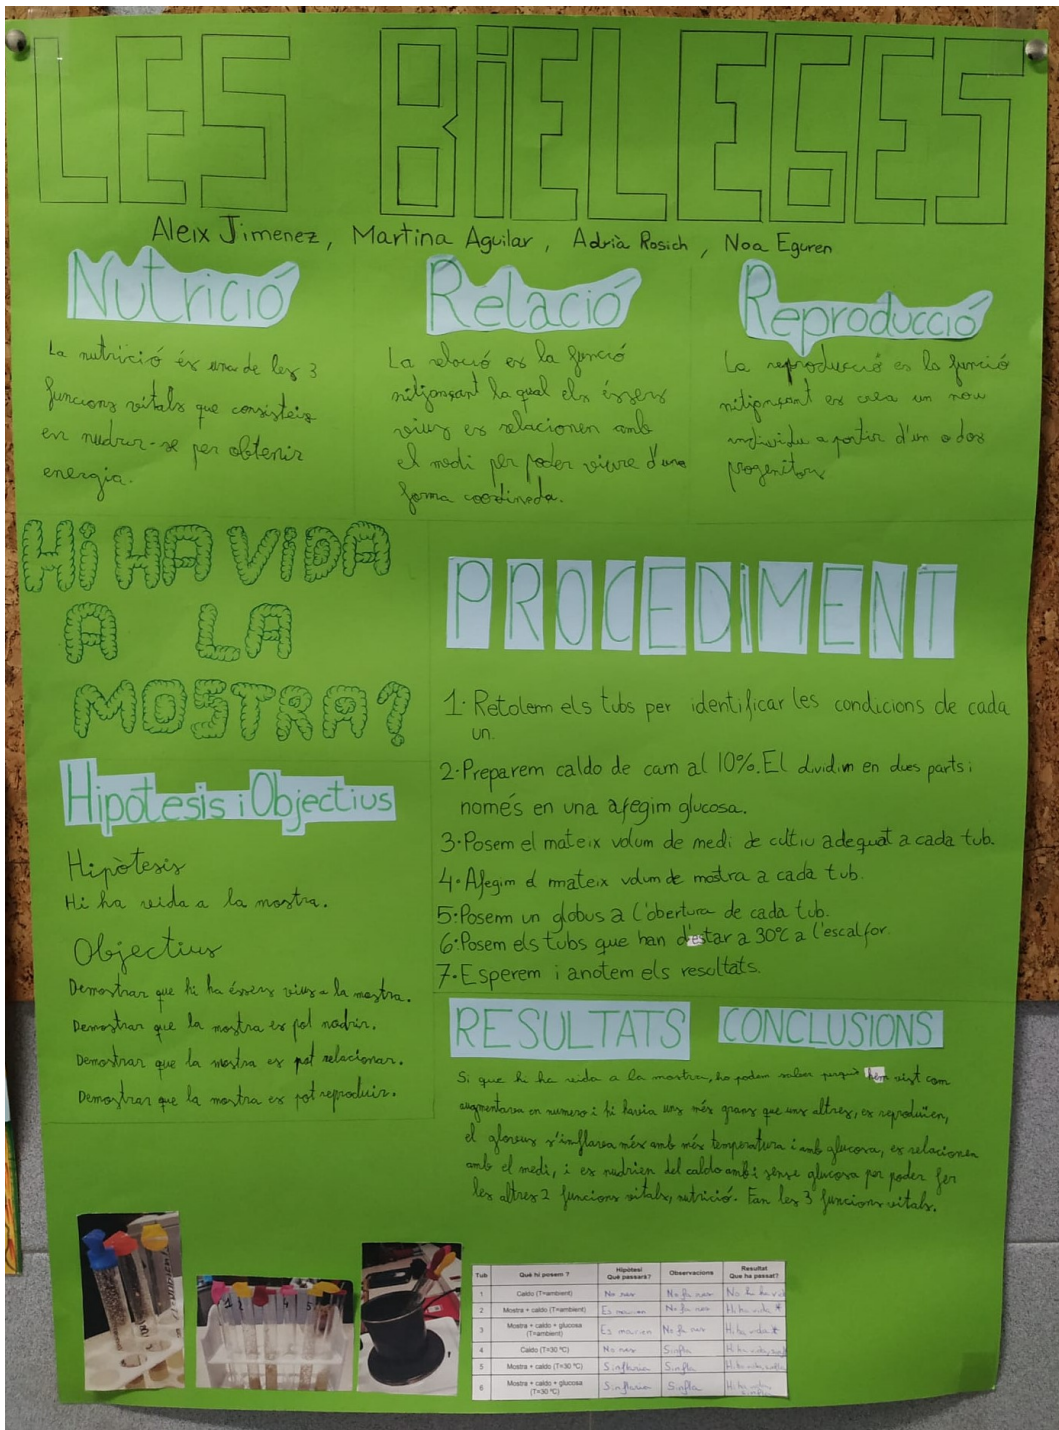 LES BIELEGES
Aleix Jimenez, Martina Aguilar, Adrià Rosich, Noa Eguren
Nutrició
La nutrició és una de les 3
funcions vitals que consisteix
en nudrir-se per obtenir
energia.
Relació
La relació es la funció
mitjançant la qual els éssers
vius es relacionen amb
el medi per poder viure d'una
forma coordineda.
Reproducció
La reproducció es la funció
mitjançant es crea un nou
individu a partir d'un o dos
progenitors
Hi HA ViDA
A LA
MOSTRA?
Hipòtesis i Objectius
Hipòtesis
Hi ha vida a la mostra.
Objectius
Demostrar que hi ha éssers vius a la mostra.
Demostrar que la mostra es pot nodrir.
Demostrar que la mostra es pot relacionar.
Demostrar que la mostra es pot reproduir.
PROCEDiMENT
1. Retolem els tubs per identificar les condicions de cada
un.
2. Preparem caldo de carn al 10%. El dividim en dues parts i
només en una afegim glucosa.
3. Posem el mateix volum de medi de cultiu adequat a cada tub.
4. Afegim el mateix volum de mostra a cada tub.
5. Posem un globus a l'obertura de cada tub.
6. Posem els tubs que han d'estar a 30ºC a l'escalfor.
7. Esperem i anotem els resultats.
RESULTATS CONCLUSIONS
Si que hi ha vida a la mostra, ho podem saber perquè hem vist com
augmentava en numero i hi havia uns més grans que uns altres, es reproduïen,
el s'inflava més amb més temperatura i amb glucosa, es relacionen
amb el medi, i es nudrien del caldo amb i sense glucosa per poder fer
les altres 2 funcions vitals, nutrició. Fan les 3 funcions vitals.
Tub Què hi posem ? Hipòtesi Què passarà? Observacions Resultat Que ha passat?
1 Caldo (T=ambient) No res No fa res No hi ha
2 Mostra + caldo (T=ambient) Es moriran No fa res Hi ha vida
3 Mostra + caldo + glucosa (T=ambient) Es moriran No fa res Hi ha vida
4 Caldo (T=30 ºC) No res Sinfla Hi ha vida
5 Mostra + caldo (T=30 ºC) Sinflaria Sinfla Hi ha vida
6 Mostra + caldo + glucosa (T=30 ºC) Sinflaria Sinfla Hi ha vida